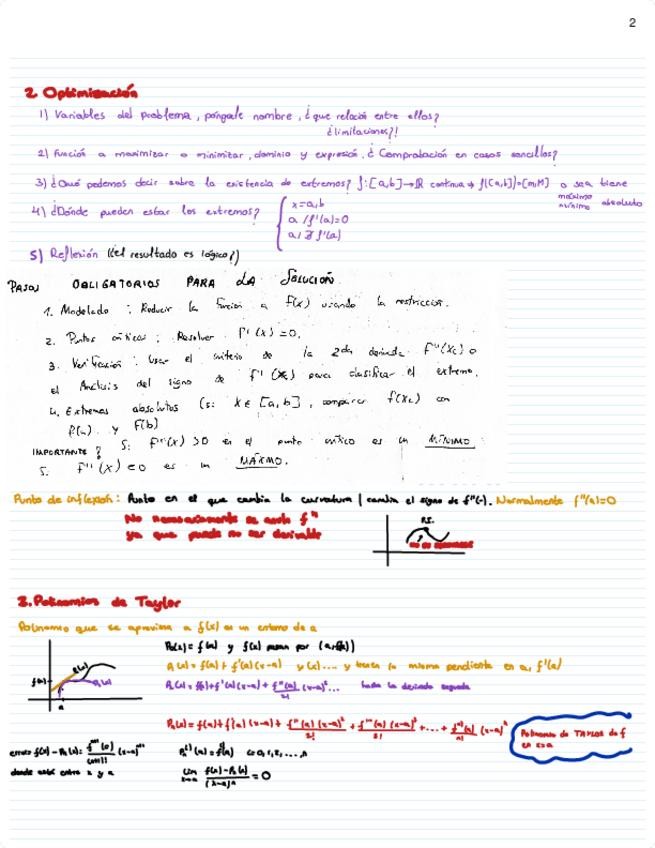 2
2. Optimización
1) Variables del problema, póngale nombre, ¿que relación entre ellos?
¿limitaciones?!
2) Función a maximizar o minimitar, dominio y expresión, ¿Comprobación en casos sencillos?
3) ¿Qué podemos decir sobre la existencia de extremos? f:[a,b]→ℝ continua → f([a,b])=[m,M] o sea tiene
máximo
mínimo absoluto
4) ¿Dónde pueden estar los extremos? { x=a,b
a / f'(a)=0
a / ∄ f'(a)
5) Reflexión (¿el resultado es lógico?)
PASOS OBLIGATORIOS PARA LA SOLUCIÓN
1. Modelado: Reducir la función a f(x) usando la restricción.
2. Puntos críticos: Resolver f'(x)=0.
3. Verificación: Usar el criterio de la 2da derivada f''(xc) o
el Análisis del signo de f'(xc) para clasificar el extremo.
4. Extremos absolutos (si x∈[a,b], comparar f(xc) con
f(a) y f(b)
IMPORTANTE? Si f''(x)>0 en el punto crítico es un MÍNIMO
Si f''(x)<0 es un MÁXMO.
Punto de inflexión: Punto en el que cambia la curvatura / cambia el signo de f''(-). Normalmente f''(a)=0
No necesariamente se anula f''
ya que puede no ser derivable
P.I.
3. Polinomios de Taylor
Polinomio que se aproxima a f(x) en un entorno de a
P₀(x)=f(a) y f(x) pasan por (a,f(a))
P₁(x)=f(a)+f'(a)(x-a) y f(x).... y tienen la misma pendiente en a, f'(a)
P₂(x)=f(a)+f'(a)(x-a)+f''(a)/2! (x-a)²... hasta la derivada segunda
f(a)
a
Pₙ(x)=f(a)+f'(a)(x-a)+f''(a)(x-a)²/2!+f'''(a)(x-a)³/3!+...+fⁿ(a)/n! (x-a)ⁿ
Polinomio de TAYLOR de f
en x=a
error f(x)-Pₙ(x)=fⁿ⁺¹(c)/(n+1)! (x-a)ⁿ⁺¹
donde está entre x y a
lim x→a f(x)-Pₙ(x)/(x-a)ⁿ=0